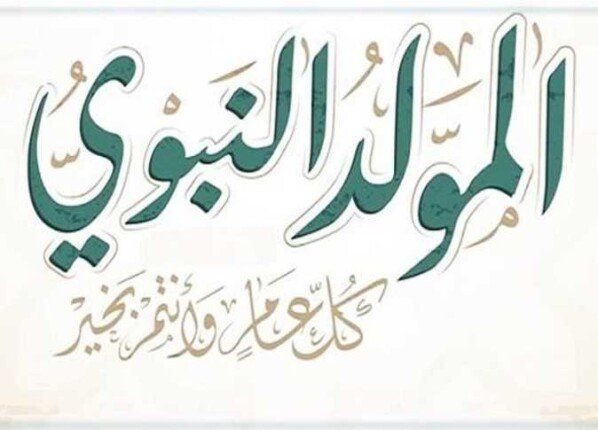 المولد النبوي
كُلّ عَامٍ وَأنتُم بَخَير